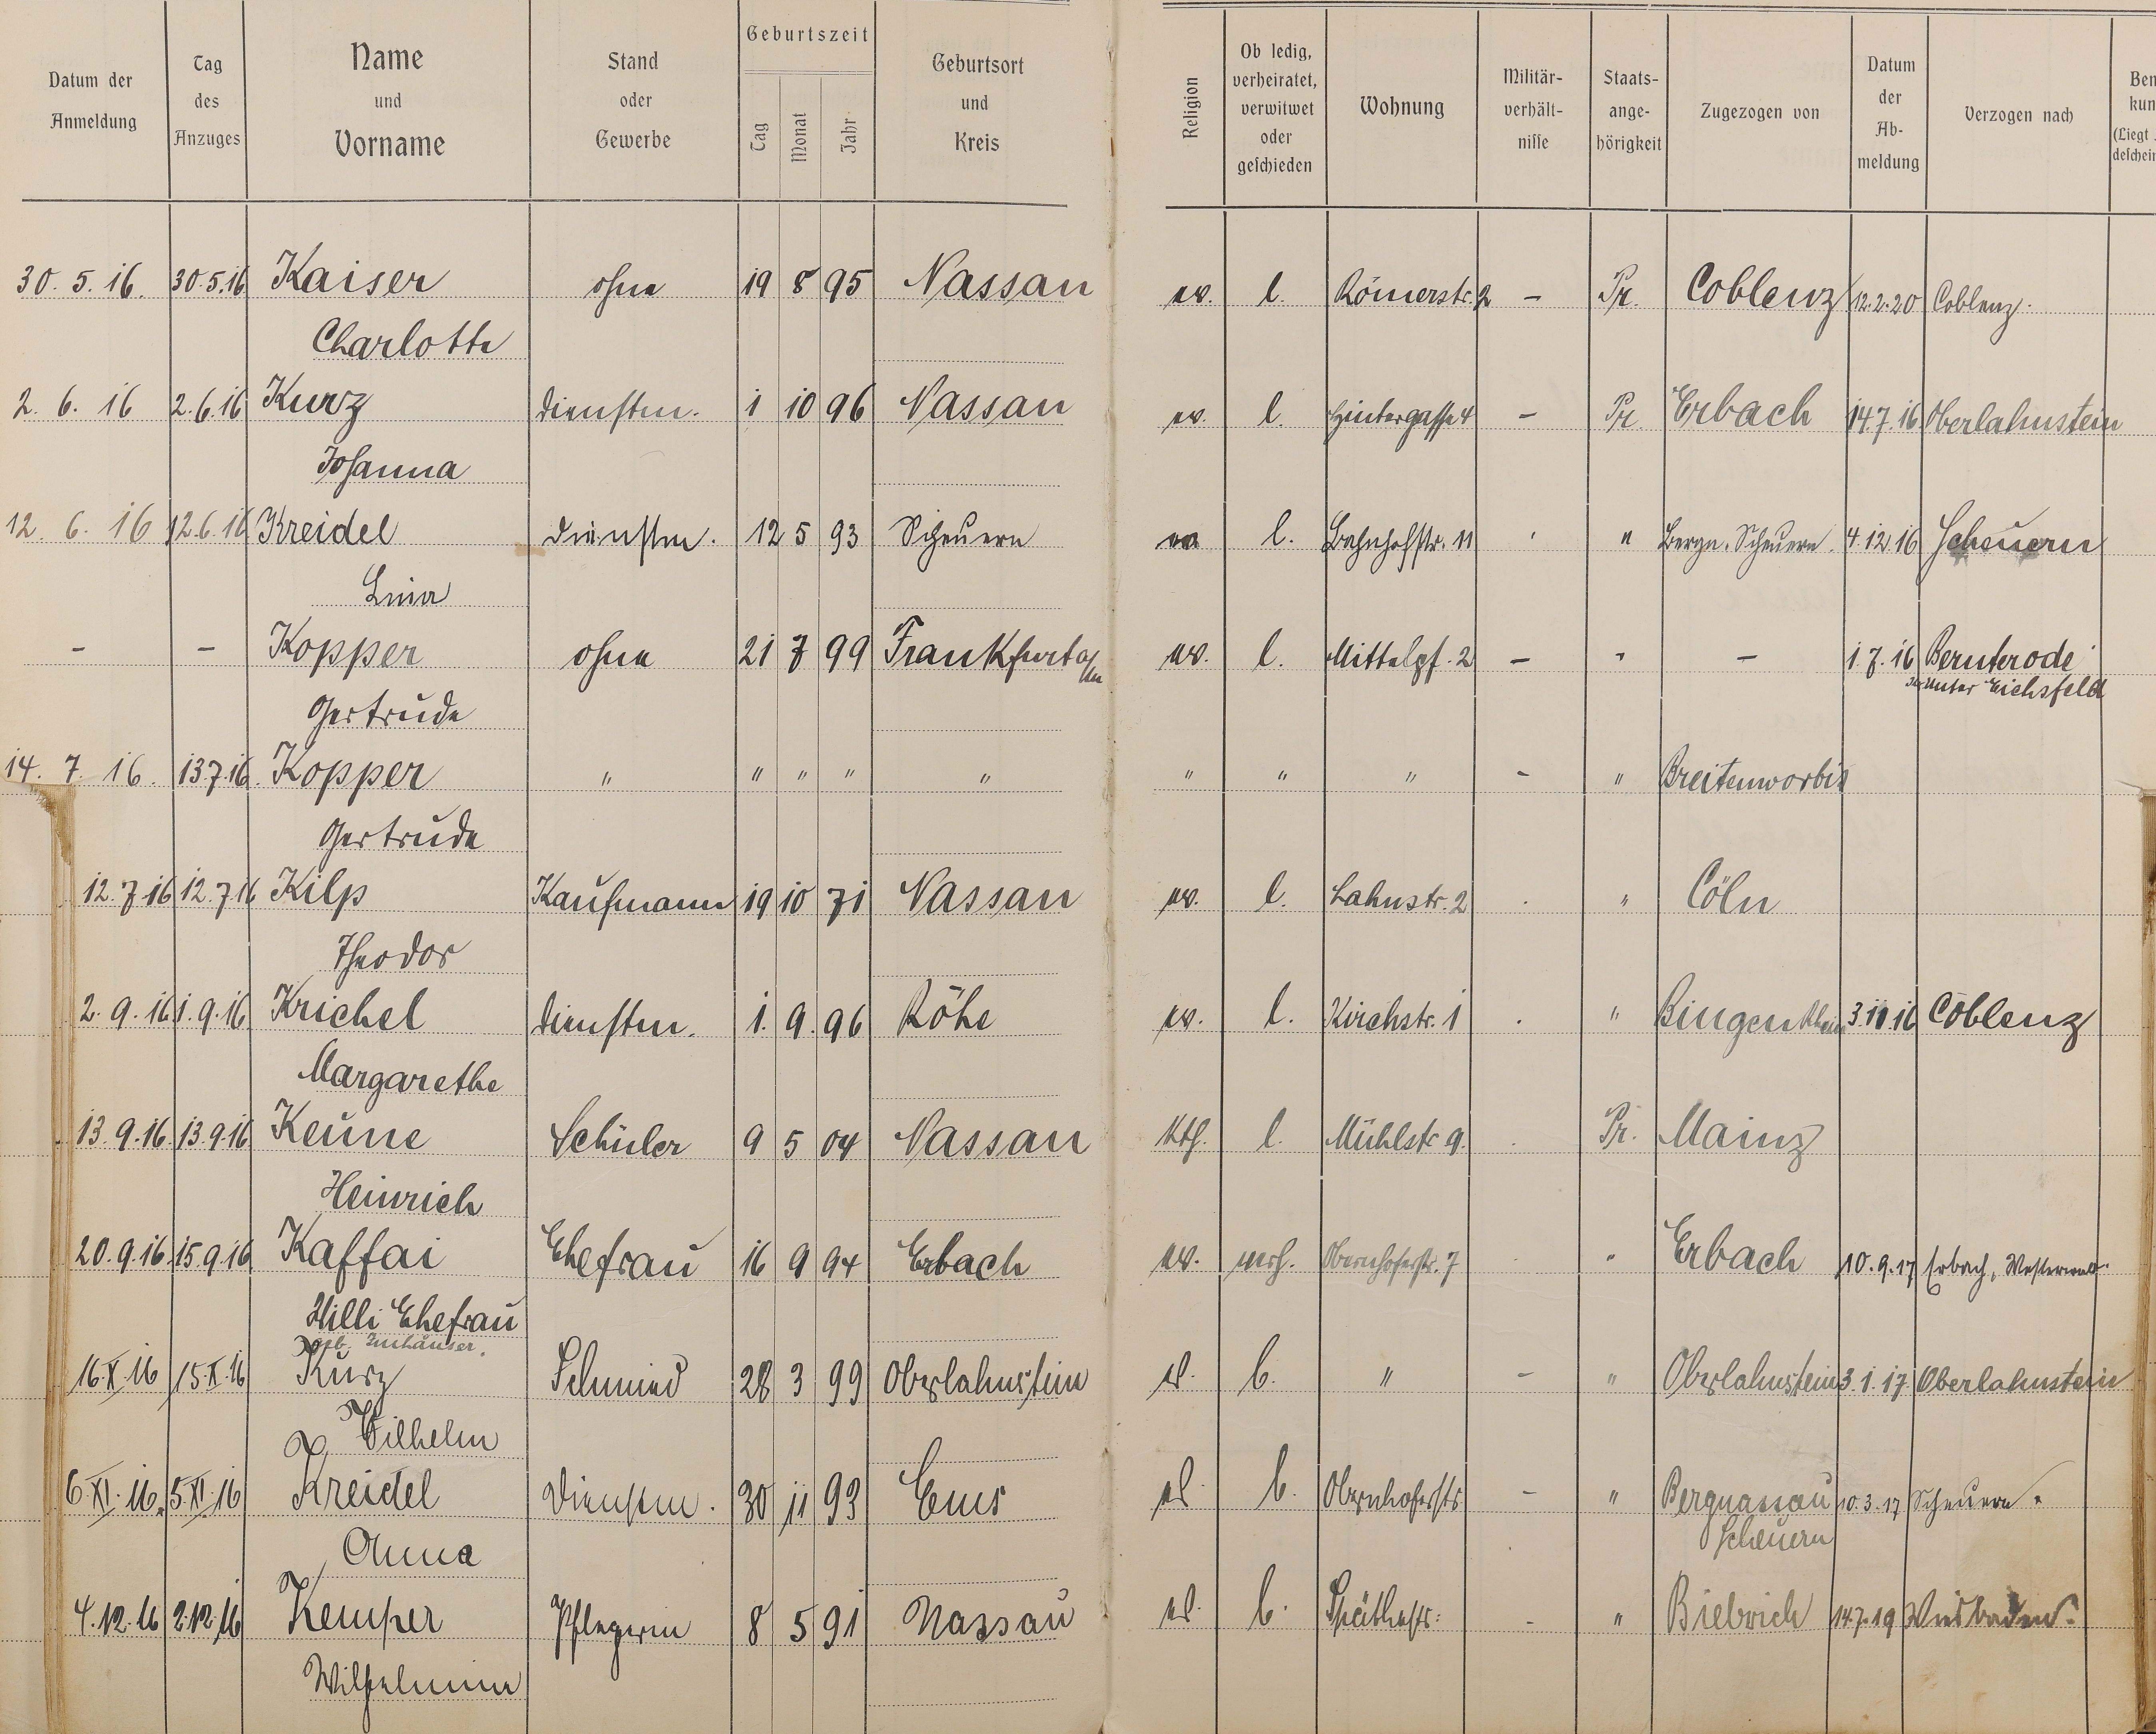 Datum der Anmeldung | Tag des Anzuges | Name und Vorname | Stand oder Gewerbe | Geburtszeit Tag Monat Jahr | Geburtsort und Kreis | Religion | Ob ledig, verheiratet, verwitwet oder geschieden | Wohnung | Militär-verhält-nisse | Staats-ange-hörigkeit | Zugezogen von | Datum der Ab-meldung | Verzogen nach
30. 5. 16. 30.5.16 Kaiser ohne 19 8 95 Nassau ev. l. Römerstr. 2 – Pr. Coblenz 12.2.20 Coblenz.
Charlotte
2. 6. 16 2.6.16 Kurz Dienstm. 1 10 96 Nassau ev. l. Hintergasse 4 – Pr. Erbach 14.7.16 Oberlahnstein
Johanna
12. 6. 16 12.6.16 Kreidel Dienstm. 12 5 93 Scheuern ev. l. Bahnhofstr. 11 " Bergn. Scheuern. 4.12.16 Scheuern
Lina
– – Kopper ohne 21 7 99 Frankfurt a/M ev. l. Mittelpf. 2 – " – 1.7.16 Bernterode
Unter Eichsfeld
Gertrude
14. 7. 16. 13.7.16. Kopper " " " " " " " " – " Breitenworbis
Gertrude
12.7.16 12.7.16 Kilp Kaufmann 19 10 71 Nassau ev. l. Lahnstr. 2 . " Cöln
Theodor
2. 9. 16 1.9.16 Krichel Dienstm. 1. 9. 96 Röhe ev. l. Kirchstr. 1 . " Bingen Rhein 3.11.16 Coblenz
Margarethe
13.9.16 13.9.16 Keune Schüler 9 5 04 Nassau Kth. l. Mühlstr 9. . Pr. Mainz
Heinrich
20.9.16 15.9.16 Kaffai Ehefrau 16 9 94 Erbach ev. verh. Obernhoferstr. 7 " Erbach 10.9.17 Erbach, Westerwald.
Willi Ehefrau
geb.
16.X.16 15.X.16 Kurz Schmied 28 3 99 Oberlahnstein ev. l. " – " Oberlahnstein 3.1.17 Oberlahnstein
Wilhelm
6.XI.16. 5.XI.16 Kreidel Dienstm. 30 11 93 Ems ev. l. Obernhoferstr – " Bergnassau 10.3.17 Scheuern.
Scheuern
Anna
4.12.16 2.12.16 Kemper Pflegerin 8 5 91 Nassau ev. l. Späthestr. – " Biebrich 14.7.19 Wiesbaden.
Wilhelmine